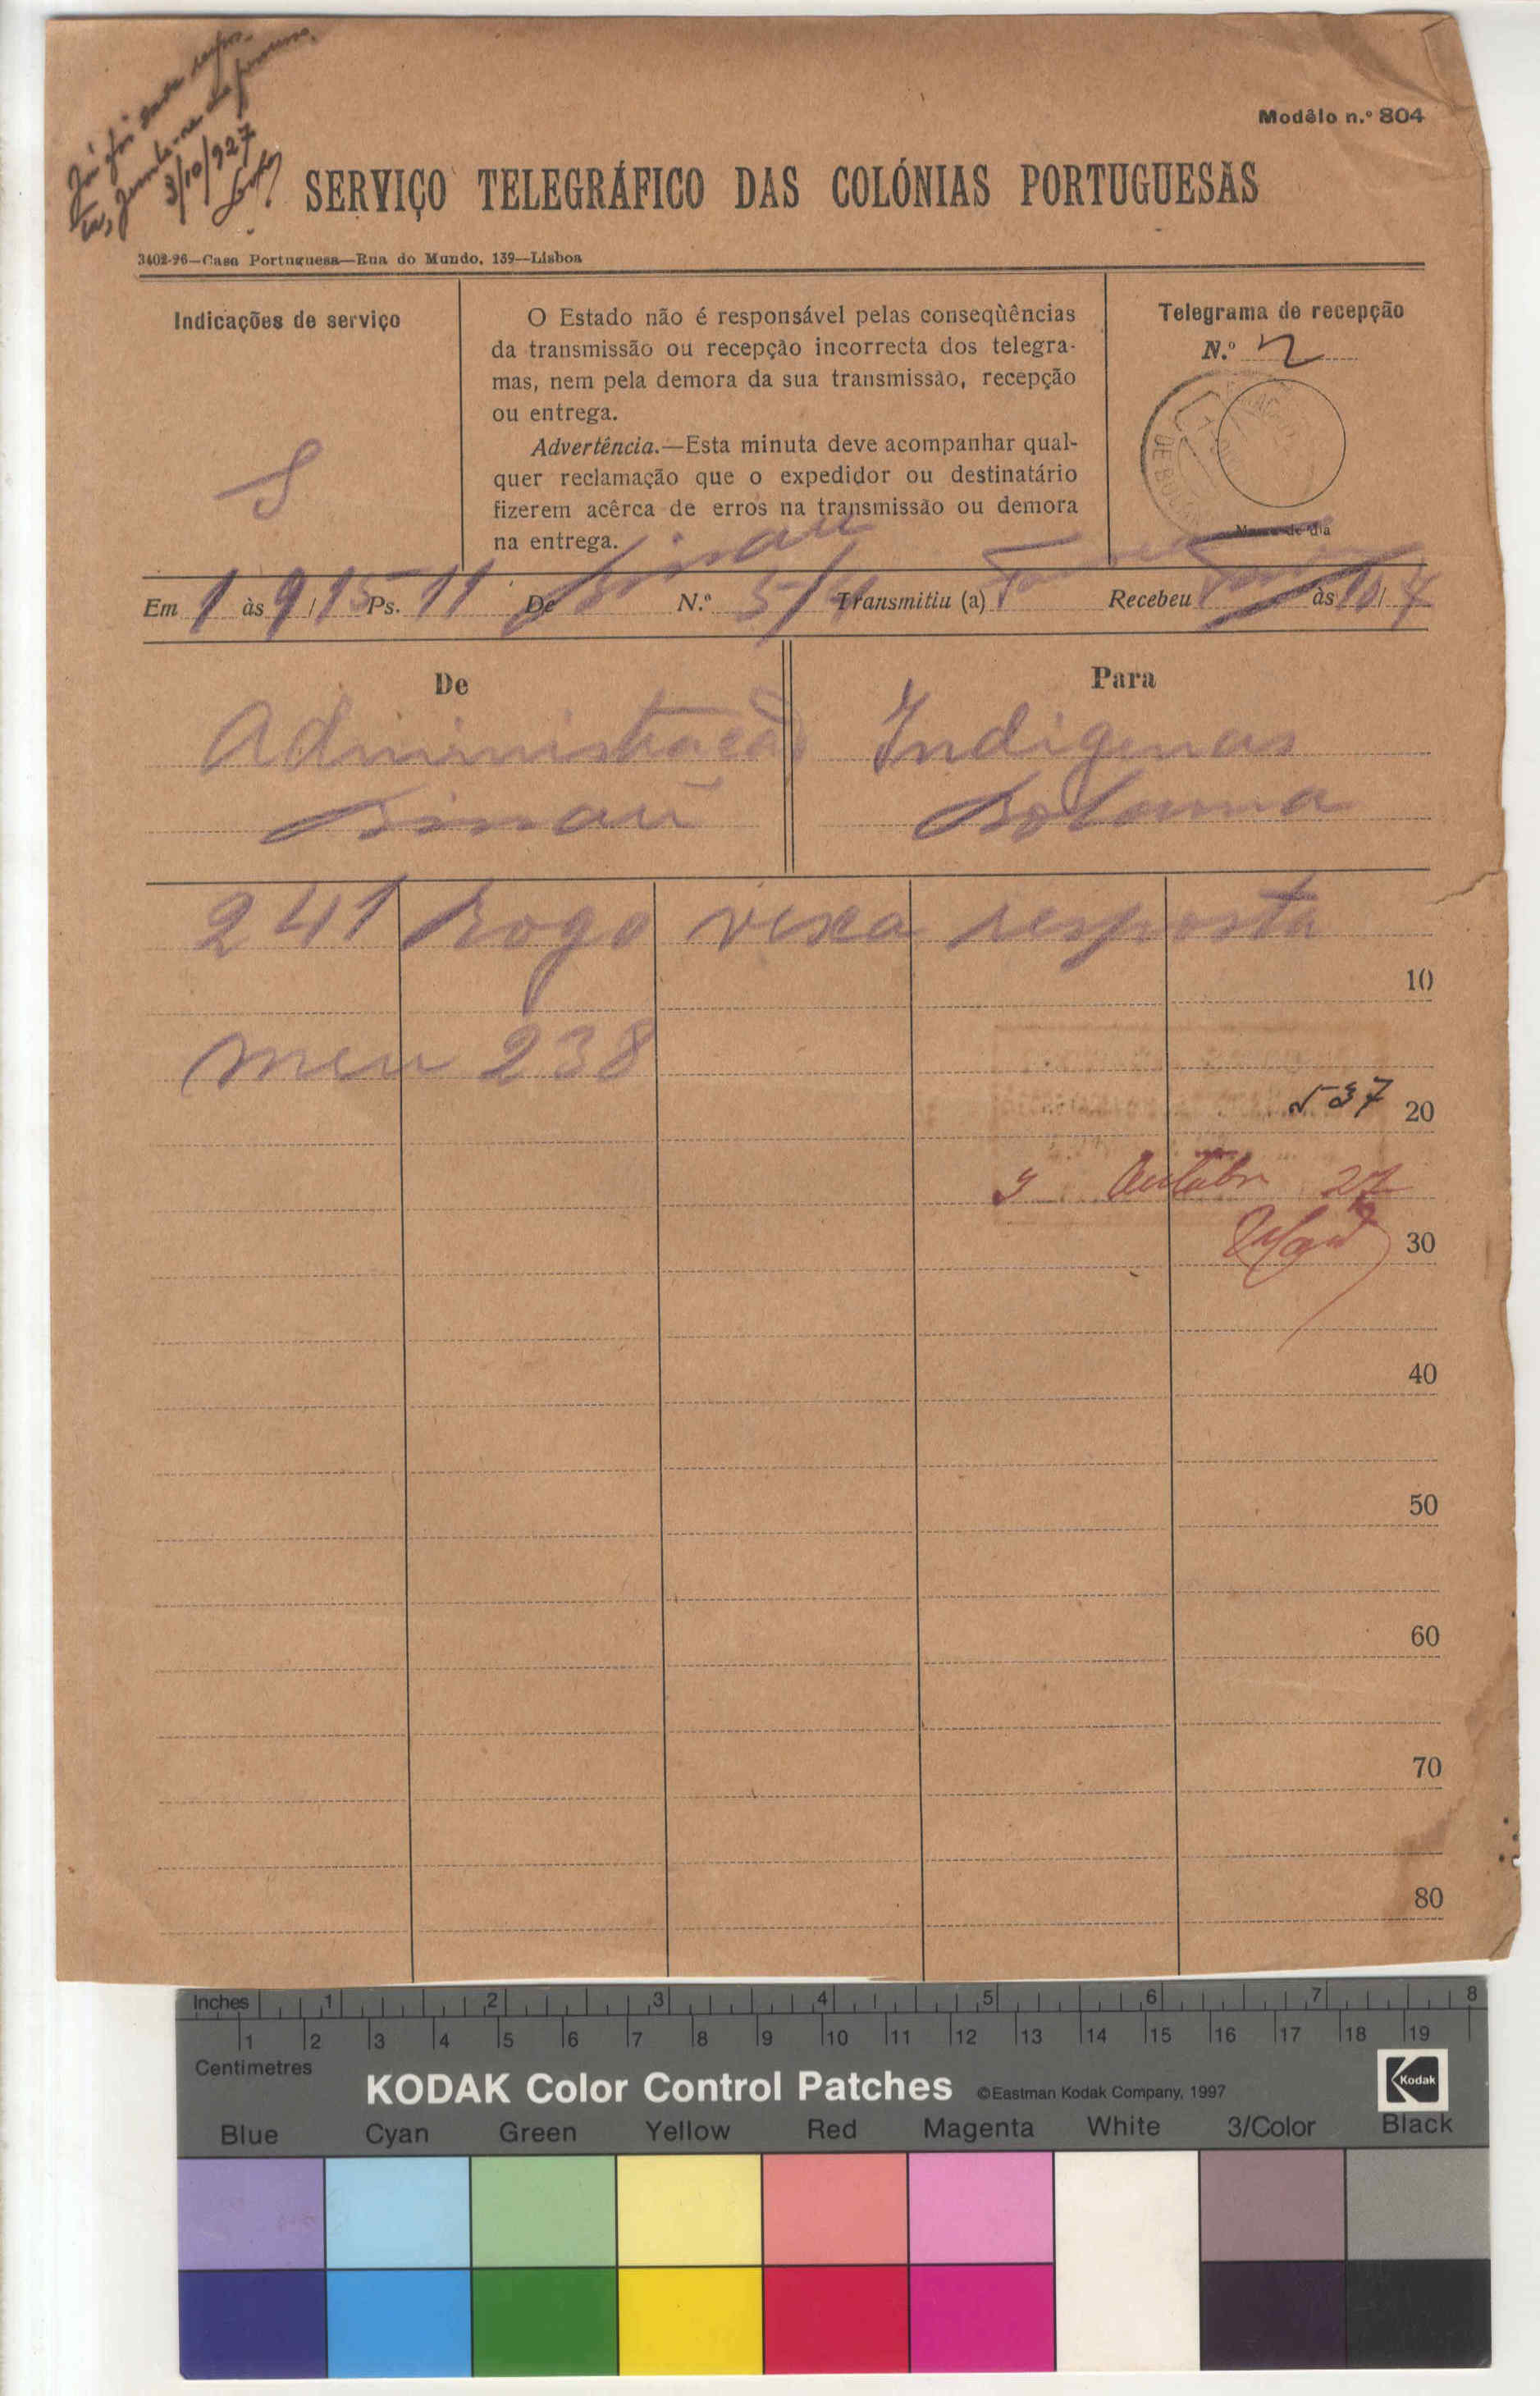 Já foi dada respos-
ta, junte-se ao processo.
3/10/927
Modêlo n.º 804
SERVIÇO TELEGRÁFICO DAS COLÓNIAS PORTUGUESAS
3402-96—Casa Portuguesa—Rua do Mundo, 139—Lisboa
Indicações de serviço
S
O Estado não é responsável pelas conseqùências
da transmissão ou recepção incorrecta dos telegra-
mas, nem pela demora da sua transmissão, recepção
ou entrega.
Advertência.—Esta minuta deve acompanhar qual-
quer reclamação que o expedidor ou destinatário
fizerem acêrca de erros na transmissão ou demora
na entrega.
Telegrama de recepção
N.º 2
Marca de dia
Em 1 às 9/15 Ps. 11 De Bissau N.º 5/ Transmitiu (a) Recebeu às 10/7
De
Administração
Bissau
Para
Indigenas
Bolama
241 Rogo vexa resposta
10
meu 238
537
20
3 Outubro 27
30
40
50
60
70
80
Inches 1 2 3 4 5 6 7 8
1 2 3 4 5 6 7 8 9 10 11 12 13 14 15 16 17 18 19
Centimetres
KODAK Color Control Patches ©Eastman Kodak Company, 1997 Kodak
Blue Cyan Green Yellow Red Magenta White 3/Color Black